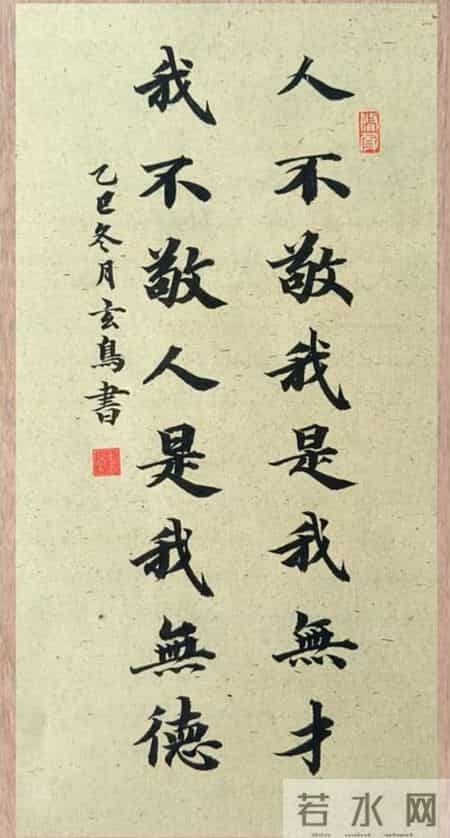 人不敬我是我無才
我不敬人是我無德
乙巳冬月玄鳥書
若水网